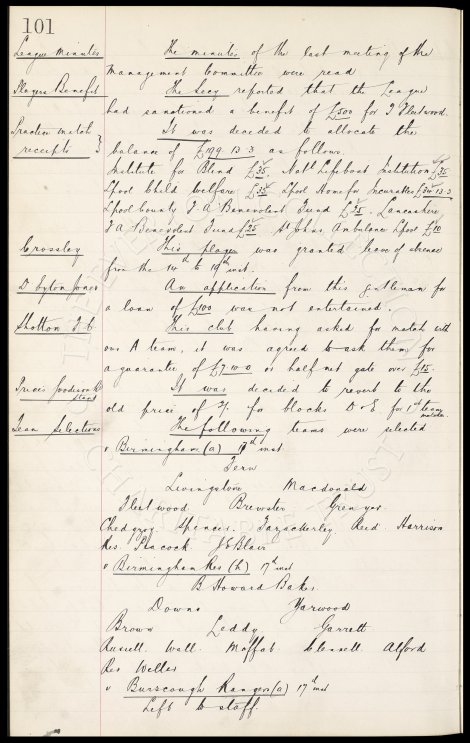 101
League Minutes
The minutes of the last meeting of the
Management Committee were read
Players Benefit
The Secy reported that the League
had sanctioned a benefit of £500 for T Fleetwood.
Practice match
receipts }
It was decided to allocate the
balance of £199.13.3 as follows.
Institute for Blind £35. Natl Lifeboat Institution £35
Lpool Child Welfare £35 Lpool Home for Incurables £34.13.3
Lpool County F.A. Benevolent Fund £25. Lancashire
F.A. Benevolent Fund £25 St Johns Ambulance Lpool £10
Crossley
This player was granted leave of absence
from the 14th to 19th inst.
D. Eyton Jones
An application from this gentleman for
a loan of £100 was not entertained.
Shotton F.C.
This club having asked for match with
our A team, it was agreed to ask them for
a guarantee of £7.10.0 or half net gate over £15.
Prices Goodison Rd
Stand
It was decided to revert to the
old price of 3/- for blocks D & E for 1st team
matches
Team Selections
The following teams were selected
v Birmingham (a) 17th inst.
Fern
Livingstone Macdonald
Fleetwood Brewster Grenyer
Chedgzoy. Spencer. Fazackerley. Reed. Harrison
Res. Peacock J E Blair
v Birmingham Res (h) 17th inst
B. Howard Baker
Downs Yarwood
Brown Leddy Garrett
Russell. Wall. Moffat Clennell. Alford
Res Weller
v Burscough Rangers (a) 17th inst
Left to staff.